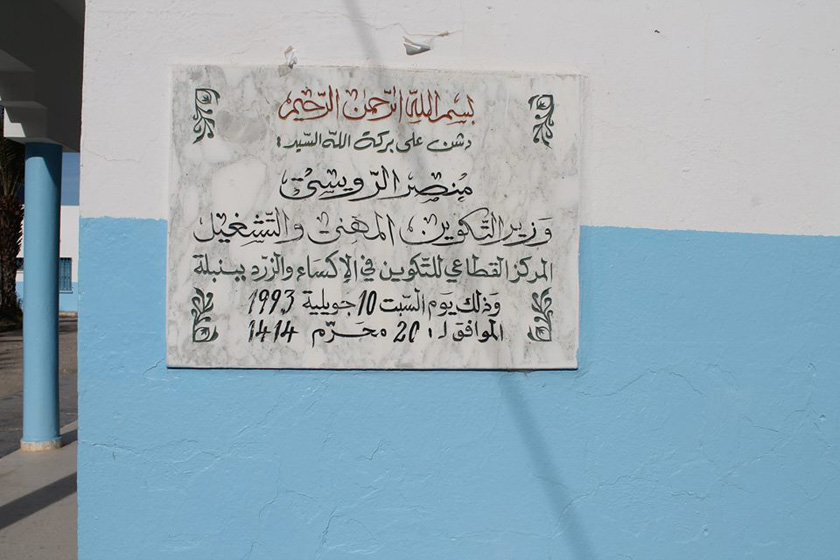 بسم الله الرّحمن الرّحيم
دشن على بركة الله السّيد:
منصر الرّويسي
وزير التكوين المهني والتّشغيل
المركز القطاعي للتكوين في الإكساء والزّرد ببنبلة
وذلك يوم السّبت 10 جويلية 1993
الموافق لـ: 20 محرّم 1414